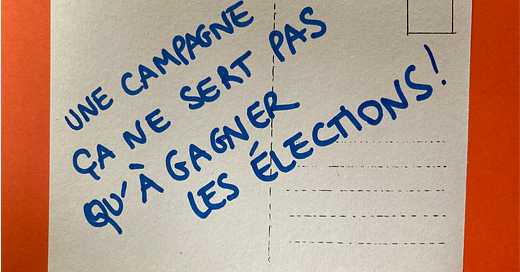 UNE CAMPAGNE
ÇA NE SERT PAS
QU'À GAGNER
LES ÉLECTIONS!